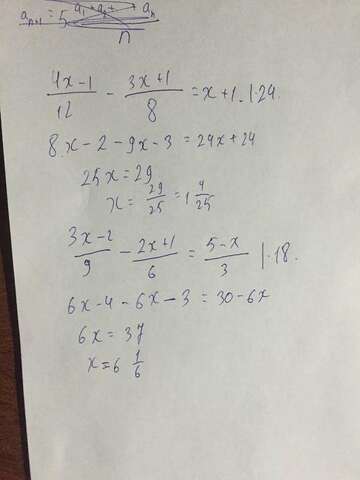 aₙ₊₁ = 5 (a₁ + a₂ + ... + aₙ) / n
(4x-1)/12 - (3x+1)/8 = x+1. |·24.
8x-2-9x-3 = 24x+24
25x = 29
x = 29/25 = 1 4/25
(3x-2)/9 - (2x+1)/6 = (5-x)/3 |·18.
6x-4-6x-3 = 30-6x
6x = 37
x = 6 1/6